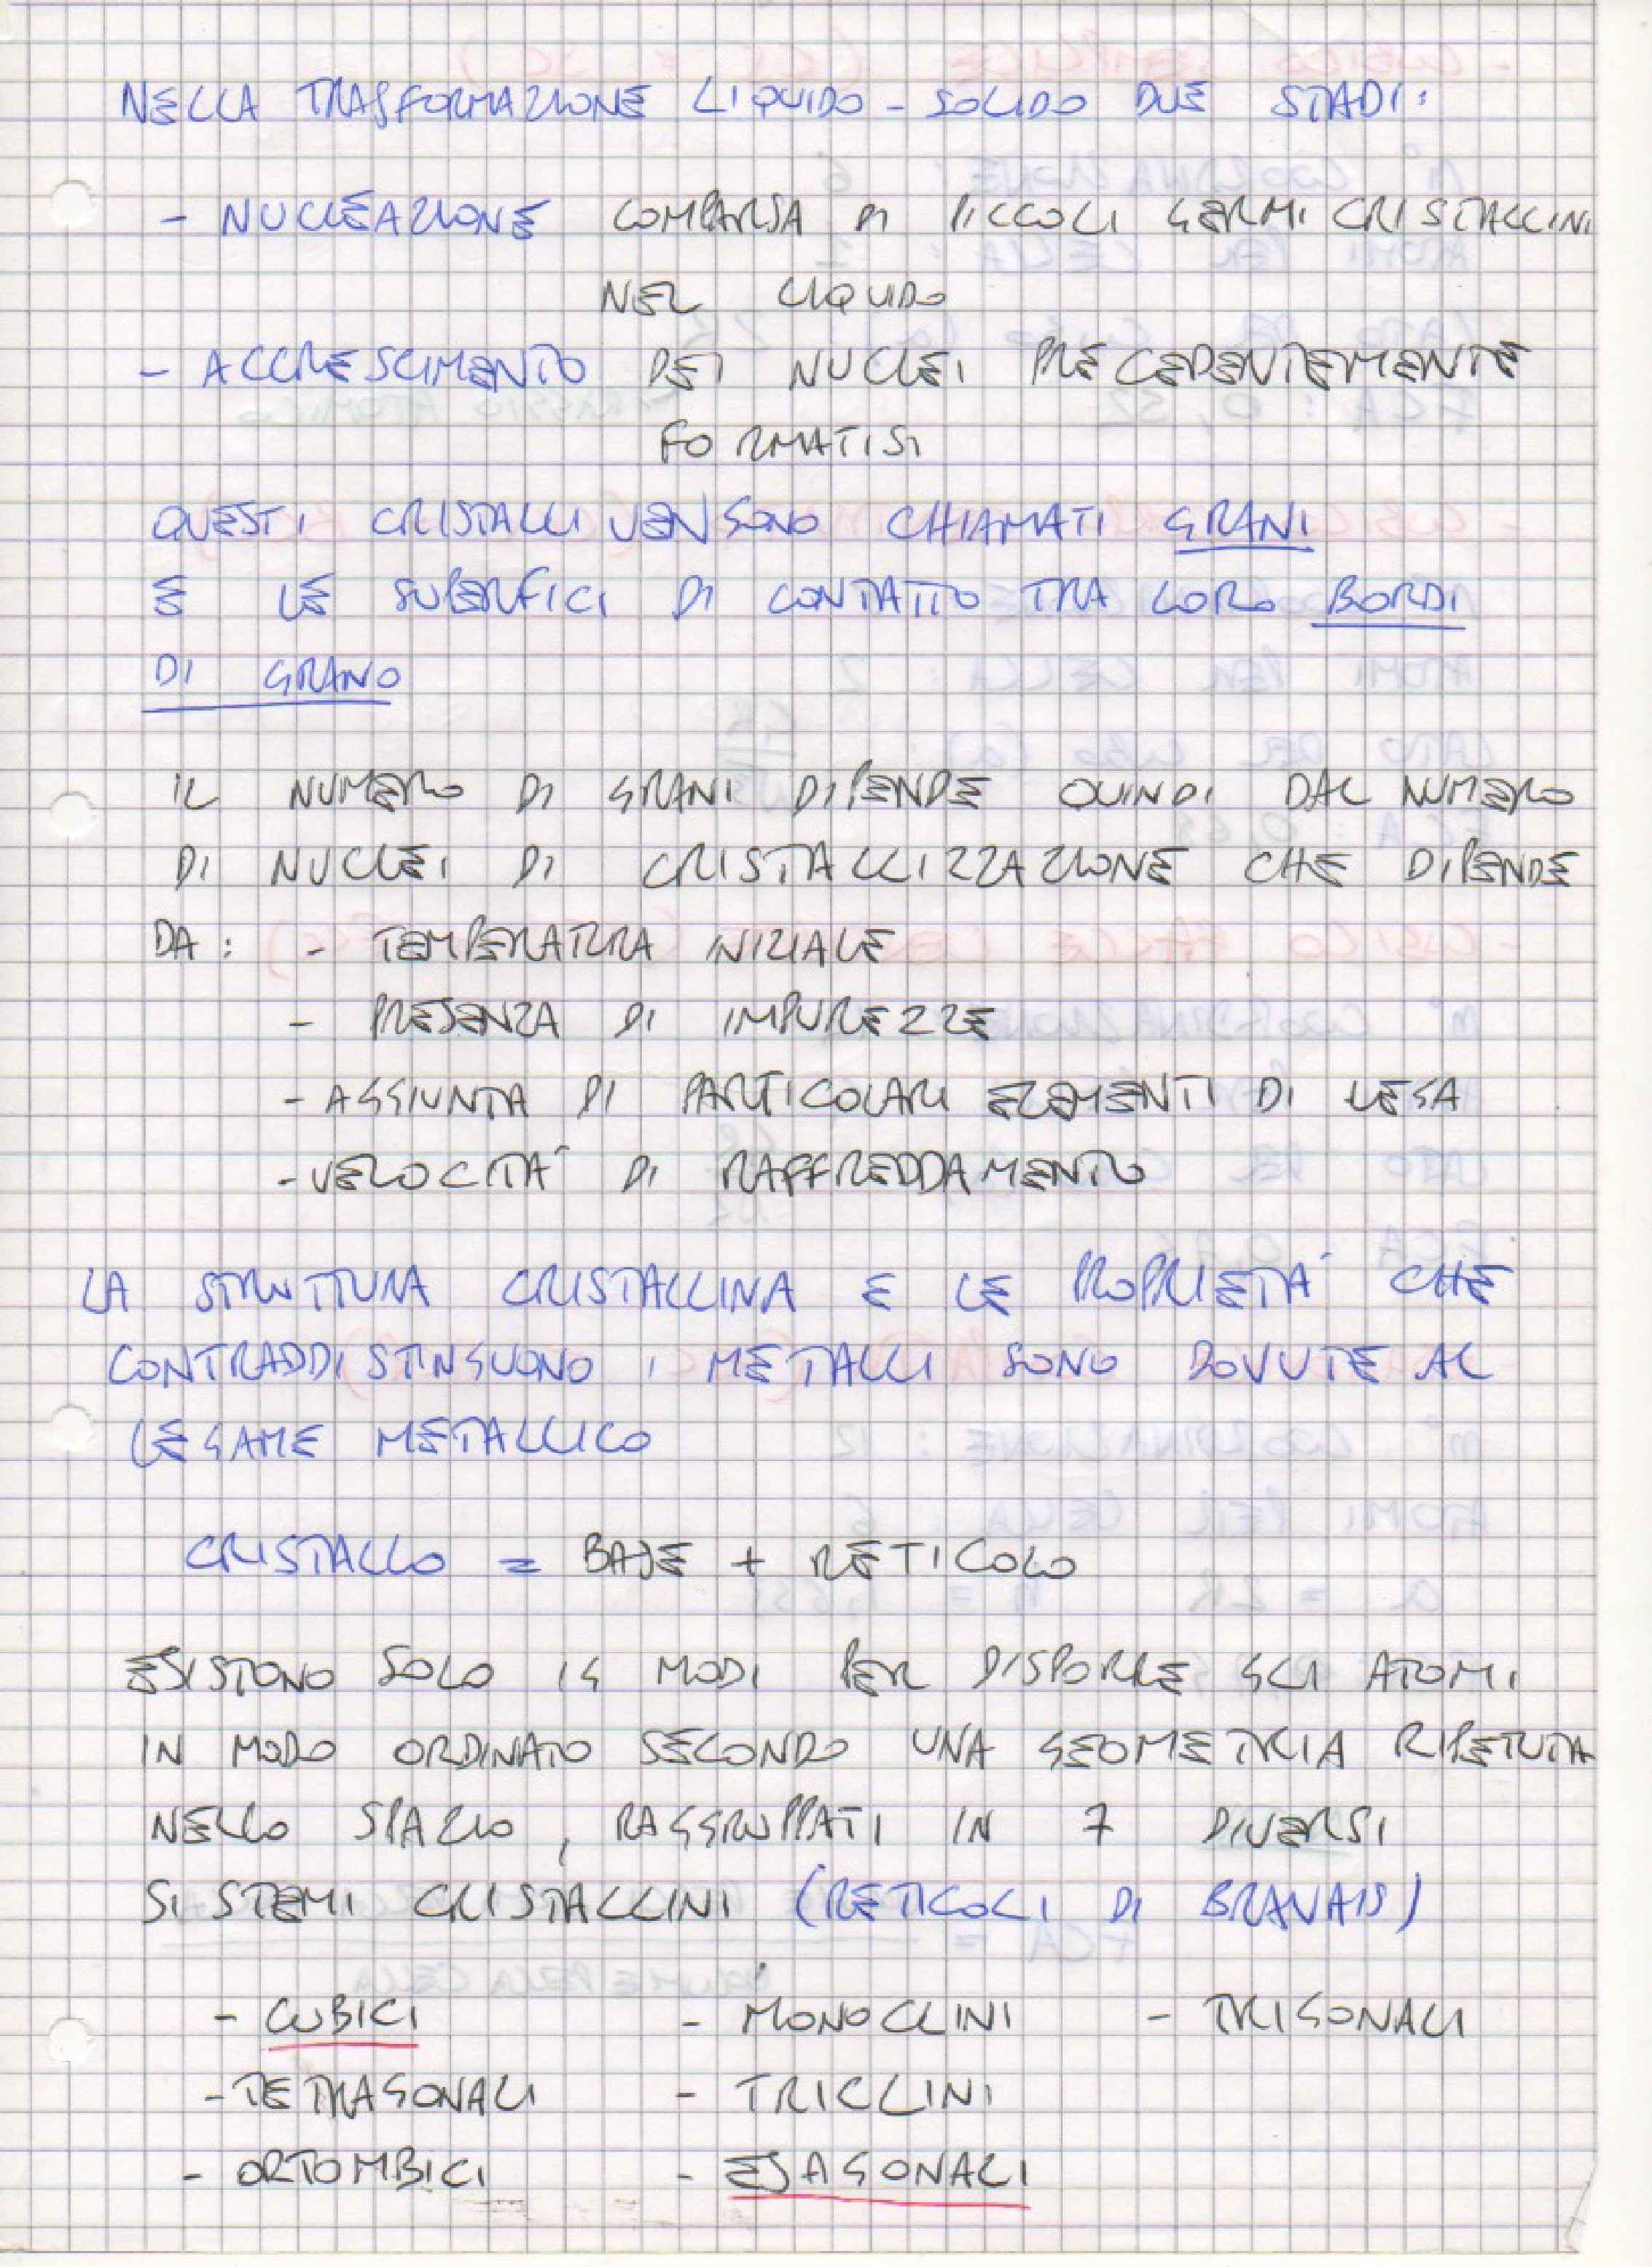 NELLA TRASFORMAZIONE LIQUIDO - SOLIDO DUE STADI:
- NUCLEAZIONE COMPARSA DI PICCOLI GERMI CRISTALLINI
NEL LIQUIDO
- ACCRESCIMENTO DEI NUCLEI PRECEDENTEMENTE
FORMATISI
QUESTI CRISTALLI VENGONO CHIAMATI GRANI
E LE SUPERFICI DI CONTATTO TRA LORO BORDI
DI GRANO
IL NUMERO DI GRANI DIPENDE QUINDI DAL NUMERO
DI NUCLEI DI CRISTALLIZZAZIONE CHE DIPENDE
DA: - TEMPERATURA INIZIALE
- PRESENZA DI IMPUREZZE
- AGGIUNTA DI PARTICOLARI ELEMENTI DI LEGA
- VELOCITA' DI RAFFREDDAMENTO
LA STRUTTURA CRISTALLINA E LE PROPRIETA' CHE
CONTRADDISTINGUONO I METALLI SONO DOVUTE AL
LEGAME METALLICO
CRISTALLO = BASE + RETICOLO
ESISTONO SOLO 14 MODI PER DISPORRE GLI ATOMI
IN MODO ORDINATO SECONDO UNA GEOMETRIA RIPETUTA
NELLO SPAZIO, RAGGRUPPATI IN 7 DIVERSI
SISTEMI CRISTALLINI (RETICOLI DI BRAVAIS)
- CUBICI - MONOCLINI - TRIGONALI
- TETRAGONALI - TRICLINI
- ORTOMBICI - ESAGONALI